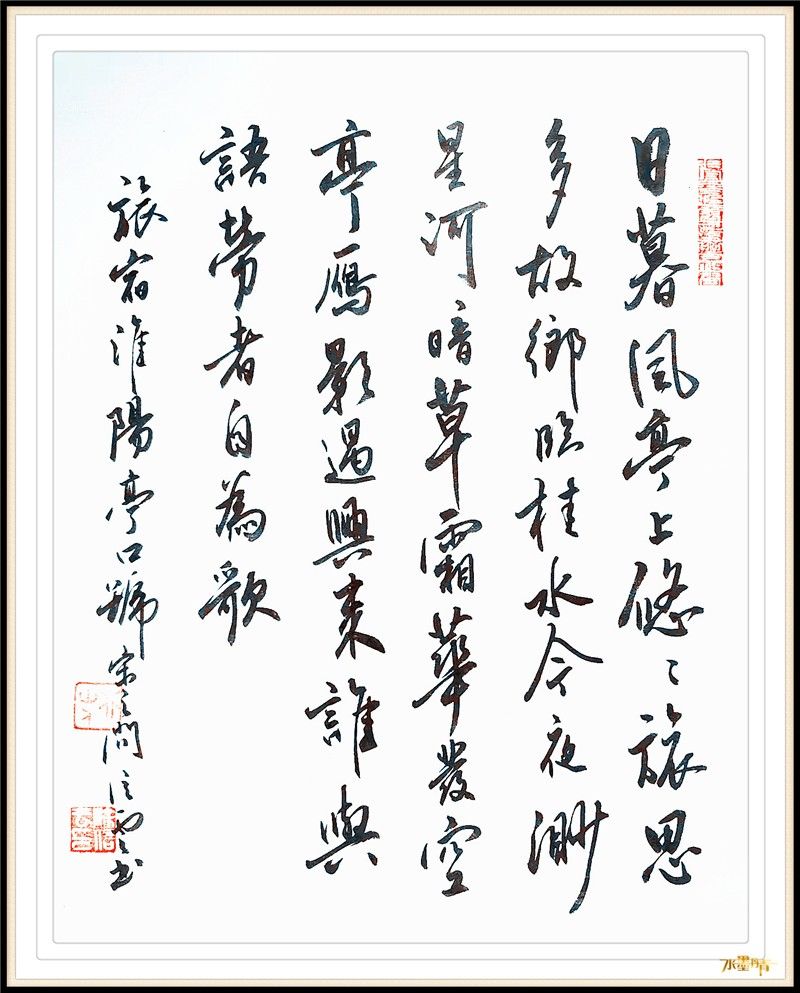 日暮風亭上悠〻旅思
多故鄉臨桂水今夜渺
星河暗草霜華發空
亭鴈影過興來誰與
語勞者自為歌
旅宿淮陽亭口號宋之問